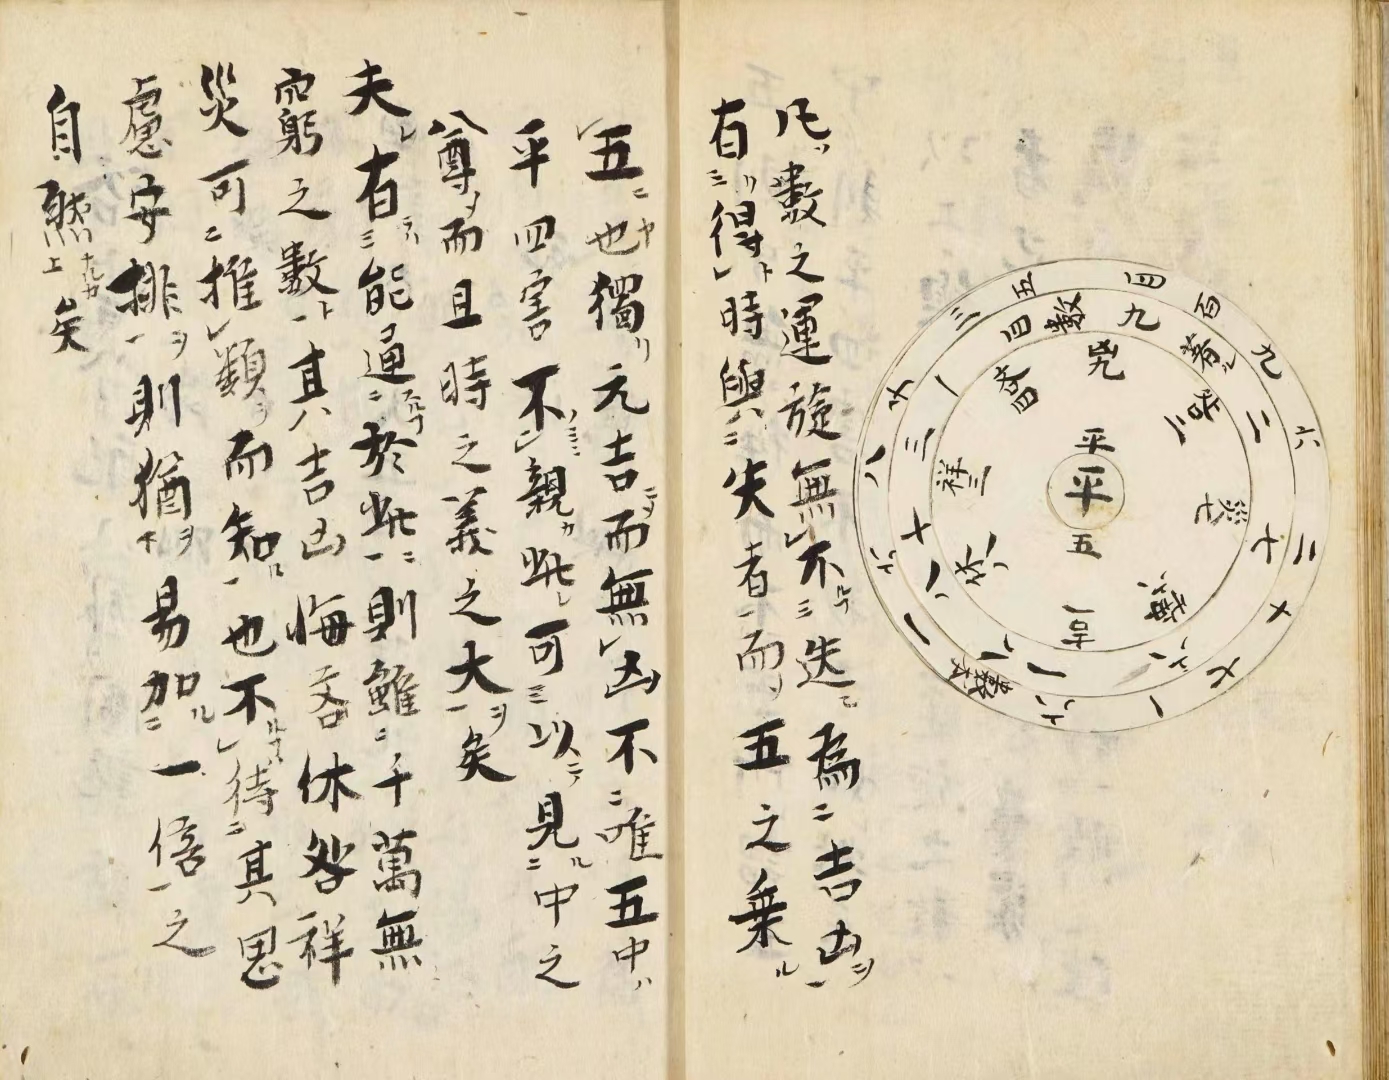 四 百 九 六 二 十 七 一 六 一 六 八 三 五
數 九 蓍 二 七 六 一 八 十 三 一 四
兇
咎三
災七
悔六
吉一
祥二
吝四
平
平
五
凡數之運旋無不迭爲吉凶
有得時與失者而五之乘
五也獨元吉而無凶不唯五中
平四害不親此可以見中之
尊而且時之義之大矣
夫有能通於此則雖千萬無
窮之數其吉凶悔吝休咎祥
災可推類而知也不待其思
慮安排則猶易加一倍之
自然矣